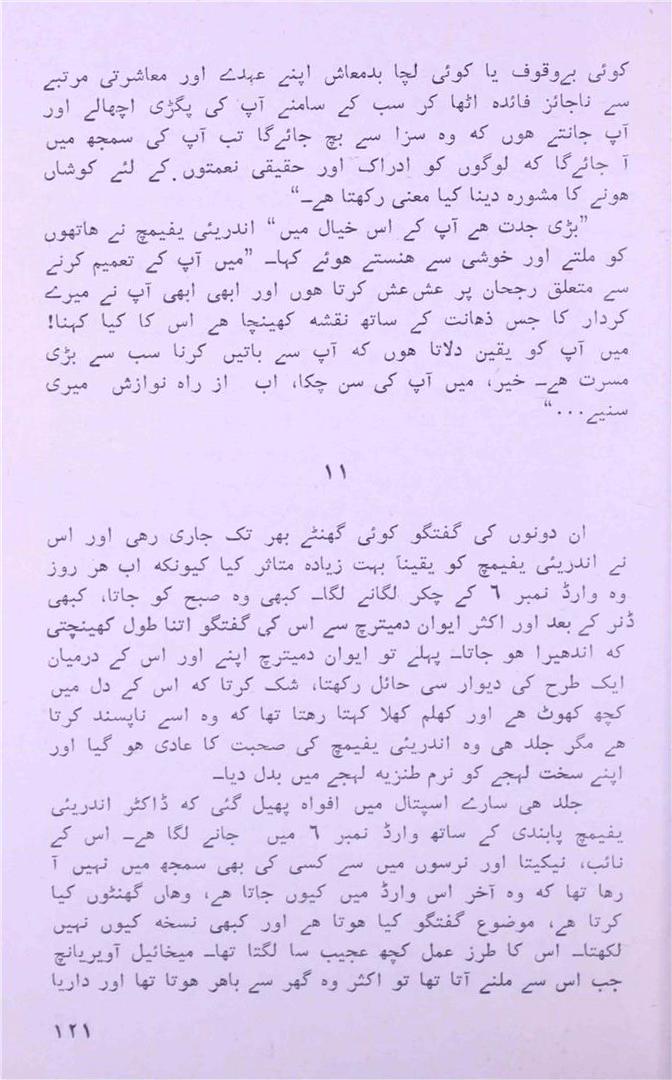 کوئی بےوقوف یا کوئی لچا بدمعاش اپنے عہدے اور معاشرتی مرتبے
سے ناجائز فائدہ اٹھا کر سب کے سامنے آپ کی پگڑی اچھالے اور
آپ جانتے هوں که وه سزا سے بچ جائےگا تب آپ کی سمجھ میں
آ جائےگا که لوگوں کو ادراک اور حقیقی نعمتوں کے لئے کوشاں
هونے کا مشوره دینا کیا معنی رکھتا هے۔“
”بڑی جدت هے آپ کے اس خیال میں“ اندریئی یفیمچ نے هاتھوں
کو ملتے اور خوشی سے هنستے هوئے کہا۔ ”میں آپ کے تعمیم کرنے
سے متعلق رجحان پر عش‌عش کرتا هوں اور ابھی ابھی آپ نے میرے
کردار کا جس ذهانت کے ساتھ نقشه کھینچا هے اس کا کیا کہنا!
میں آپ کو یقین دلاتا هوں که آپ سے باتیں کرنا سب سے بڑی
مسرت هے۔ خیر، میں آپ کی سن چکا، اب از راه نوازش میری
سنیے...“
۱۱
ان دونوں کی گفتگو کوئی گھنٹے بھر تک جاری رهی اور اس
نے اندریئی یفیمچ کو یقیناً بہت زیاده متاثر کیا کیونکه اب هر روز
وه وارڈ نمبر ٦ کے چکر لگانے لگا۔ کبھی وه صبح کو جاتا، کبھی
ڈنر کے بعد اور اکثر ایوان دمیترچ سے اس کی گفتگو اتنا طول کھینچتی
که اندهیرا هو جاتا۔ پہلے تو ایوان دمیترچ اپنے اور اس کے درمیان
ایک طرح کی دیوار سی حائل رکھتا، شک کرتا که اس کے دل میں
کچھ کھوٹ هے اور کھلم کھلا کہتا رهتا تھا که وه اسے ناپسند کرتا
هے مگر جلد هی وه اندریئی یفیمچ کی صحبت کا عادی هو گیا اور
اپنے سخت لہجے کو نرم طنزیه لہجے میں بدل دیا۔
جلد هی سارے اسپتال میں افواه پھیل گئی که ڈاکٹر اندریئی
یفیمچ پابندی کے ساتھ وارڈ نمبر ٦ میں جانے لگا هے۔ اس کے
نائب، نیکیتا اور نرسوں میں سے کسی کی بھی سمجھ میں نہیں آ
رها تھا که وه آخر اس وارڈ میں کیوں جاتا هے، وهاں گھنٹوں کیا
کرتا هے، موضوع گفتگو کیا هوتا هے اور کبھی نسخه کیوں نہیں
لکھتا۔ اس کا طرز عمل کچھ عجیب سا لگتا تھا۔ میخائیل آویریانچ
جب اس سے ملنے آتا تھا تو اکثر وه گھر سے باهر هوتا تھا اور داریا
۱۲۱